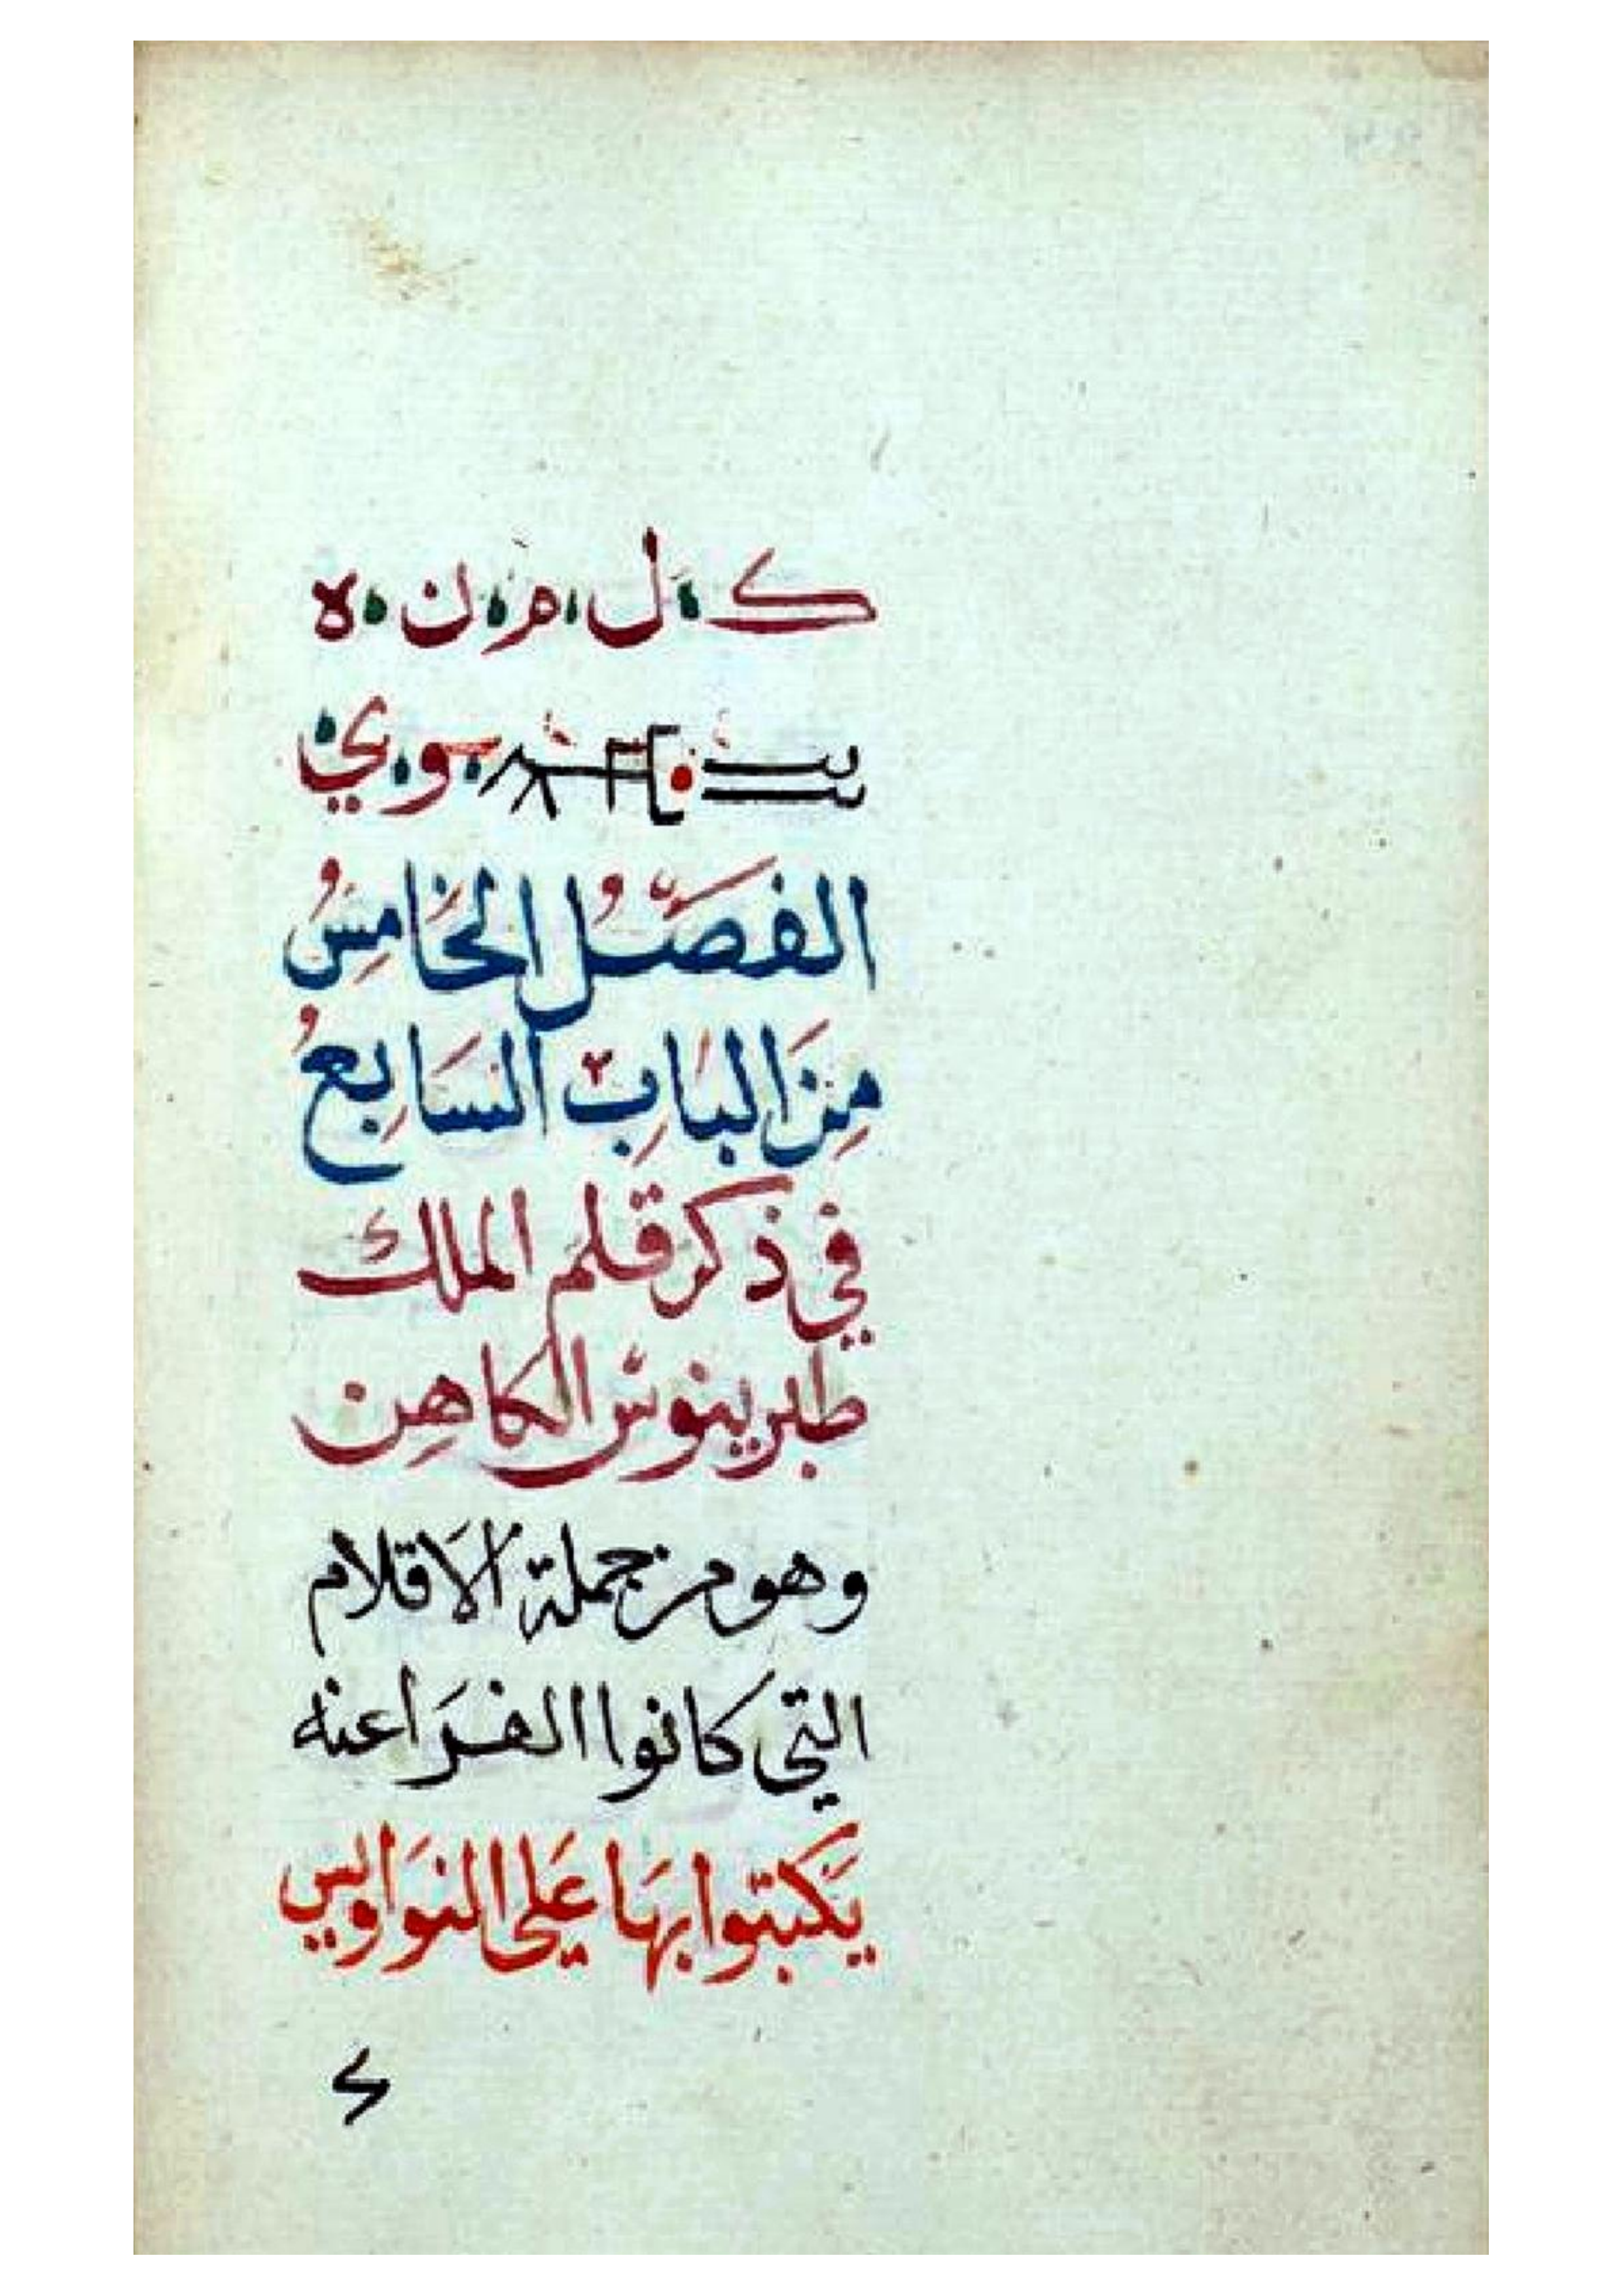 ك ل م ن ه
و ي
الفَصْلُ الخَامِسُ
مِنَ البَابِ السَابِعُ
في ذكر قلم الملك
طبرينوس الكاهِن
وهو من جملة الاقلام
التي كانوا الفرَاعنه
يَكتبوا بهَا عَلى النوَاويس